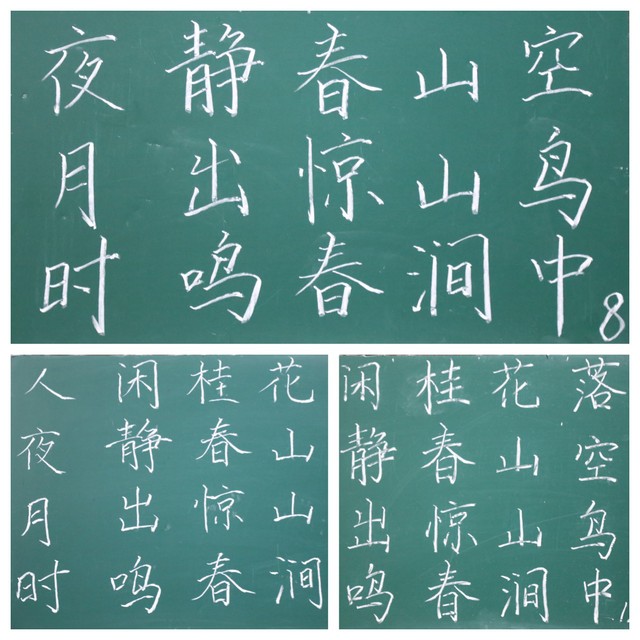 夜静春山空
月出惊山鸟
时鸣春涧中
8
人闲桂花
夜静春山
月出惊山
时鸣春涧
闲桂花落
静春山空
出惊山鸟
鸣春涧中